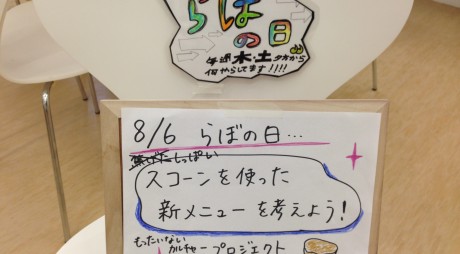 らぼの日
毎週木・土夕方から
何やらしてます!!!!
8/6 らぼの日…
焦げたしっぱい
スコーンを使った
新メニューを考えよう!
もったいない
カルチャープロジェクト